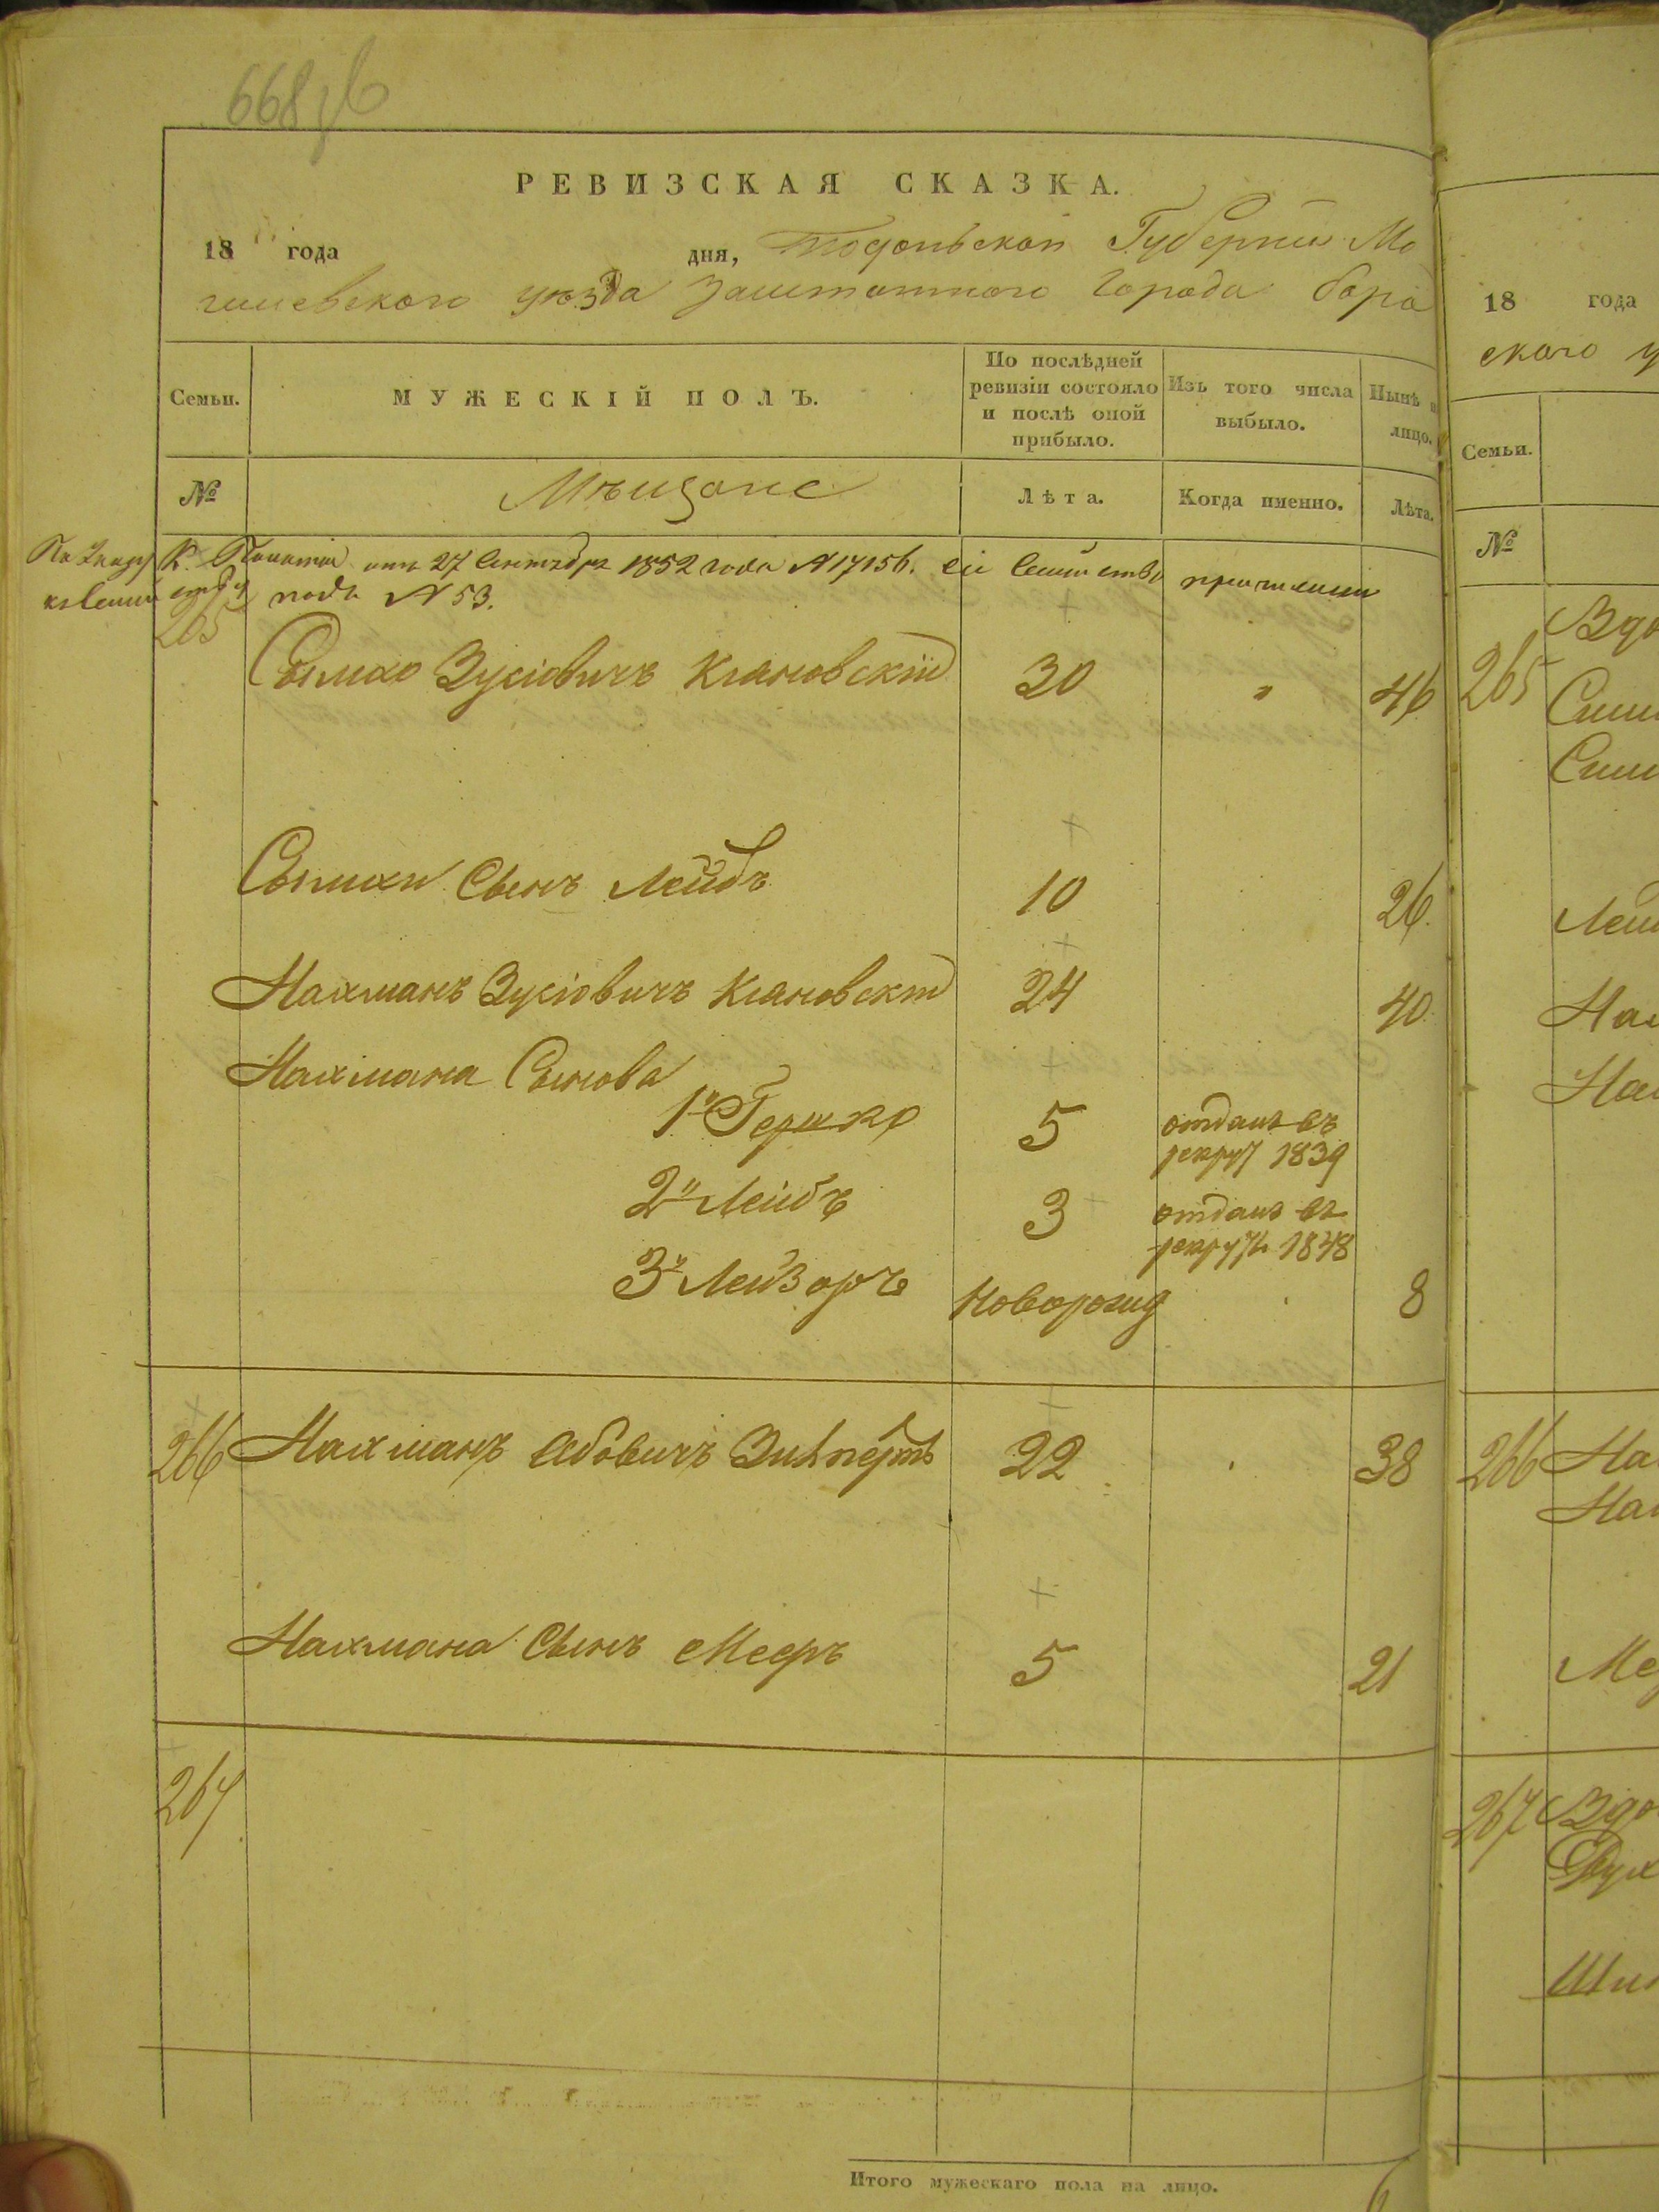 668
РЕВИЗСКАЯ СКАЗКА.
18 года дня, Подольской Губернiи Мо
гилевского уѣзда Заштатного Города Бара
Семьи.
МУЖЕСКIЙ ПОЛЪ.
По послѣдней
ревизiи состояло
и послѣ оной
прибыло.
Изъ того числа
выбыло.
Нынѣ н
лицо.
№
Мѣщане
Лѣта.
Когда именно.
Лѣта.
К. Палаты отъ 27 Сентября 1852 года №17156. сiе Семейство причислено
подъ № 53.
265
Сымхо Зусiовичъ Клановскiй 30 " 46
Сымхи Сынъ Лейбъ 10 26.
Нахманъ Зусiовичъ Клановскiй 24 40.
Нахмана Сынова
1й Гершко 5 отданъ въ
рекруты 1839
2й Лейбъ 3 отданъ въ
рекруты 1848
3й Лейзоръ Новорожд 8
266 Нахманъ Абовичъ 22 38
Нахмана Сынъ Мееръ 5 21
267
Итого мужескаго пола на лицо.
6
18 года
ского у
Семьи.
№
Вдо
265
Сим
Сим
Лей
Нах
Нах
266 На
На
Ме
267 Вдо
Рух
Ши